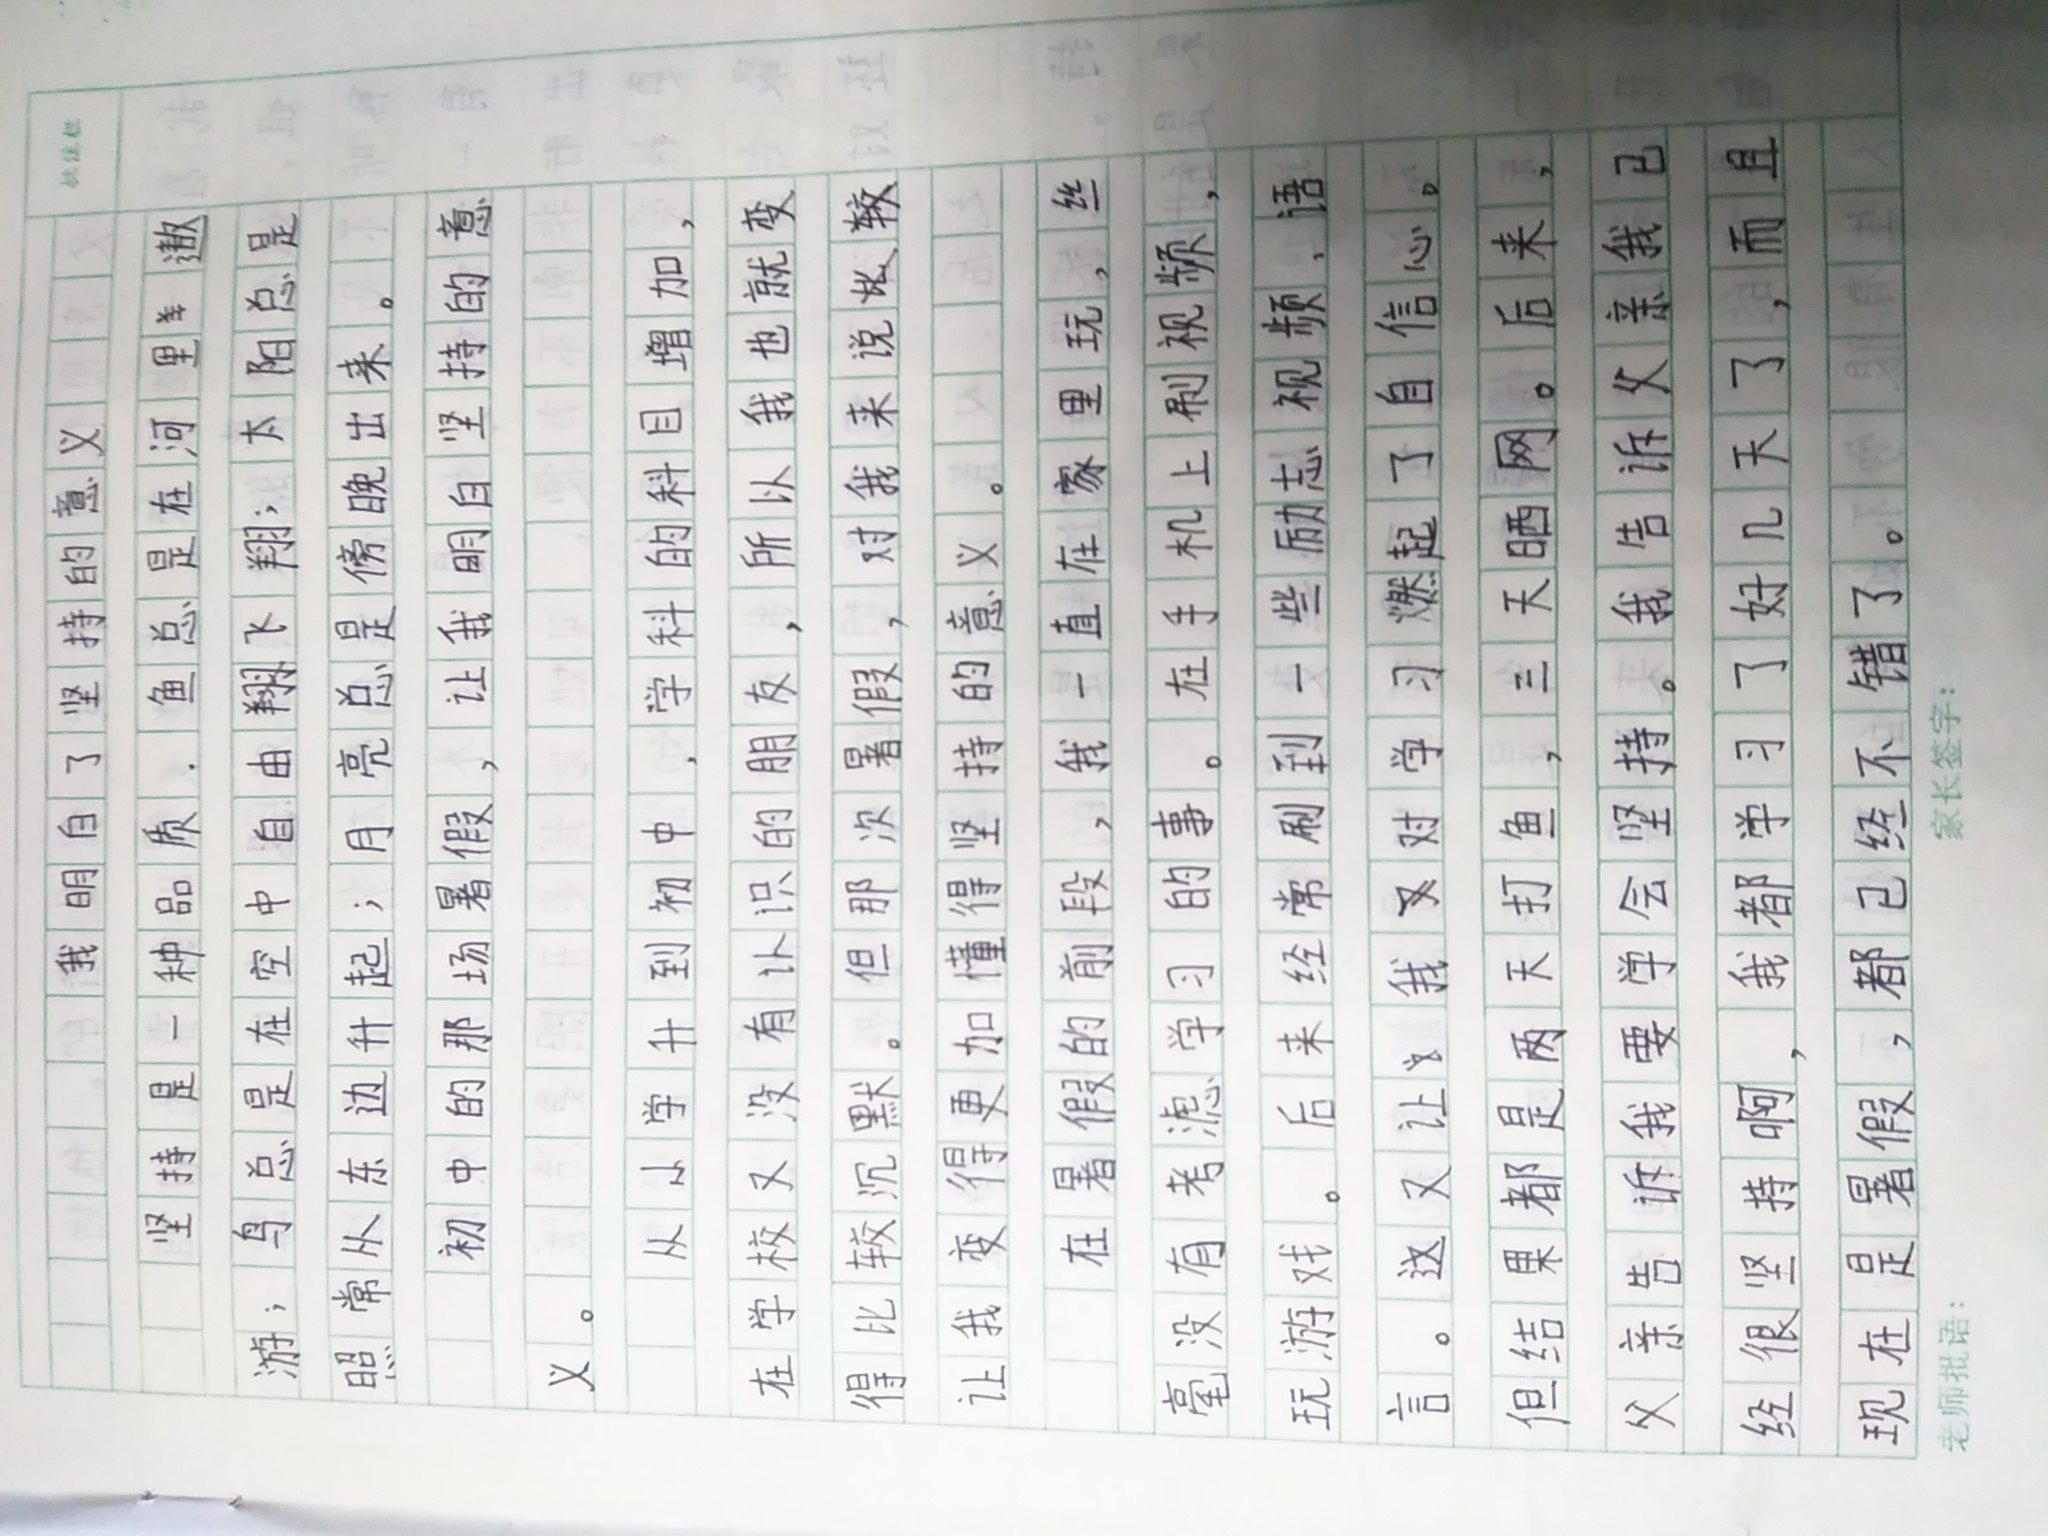 批注栏
我明白了坚持的意义
坚持是一种品质.鱼总是在河里遨
游；鸟总是在空中自由翱翔飞翔；太阳总是
照常从东边升起；月亮总是傍晚出来。
初中的那场暑假，让我明白坚持的意
义。
从小学升到初中，学科的科目增加，
在学校又没有认识的朋友，所以我也就变
得比较沉默。但那次暑假，对我来说比较
让我变得更加懂得坚持的意义。
在暑假的前段，我一直在家里玩，丝
毫没有考滤学习的事。在手机上刷视频，
玩游戏。后来经常刷到一些励志视频、语
言。这又让我又对学习燃起了自信心。
但结果都是两天打鱼，三天晒网。后来，
父亲告诉我要学会坚持。我告诉父亲我已
经很坚持啊，我都学习了好几天了，而且
现在是暑假，都已经不错了。
老师批语：
家长签字：